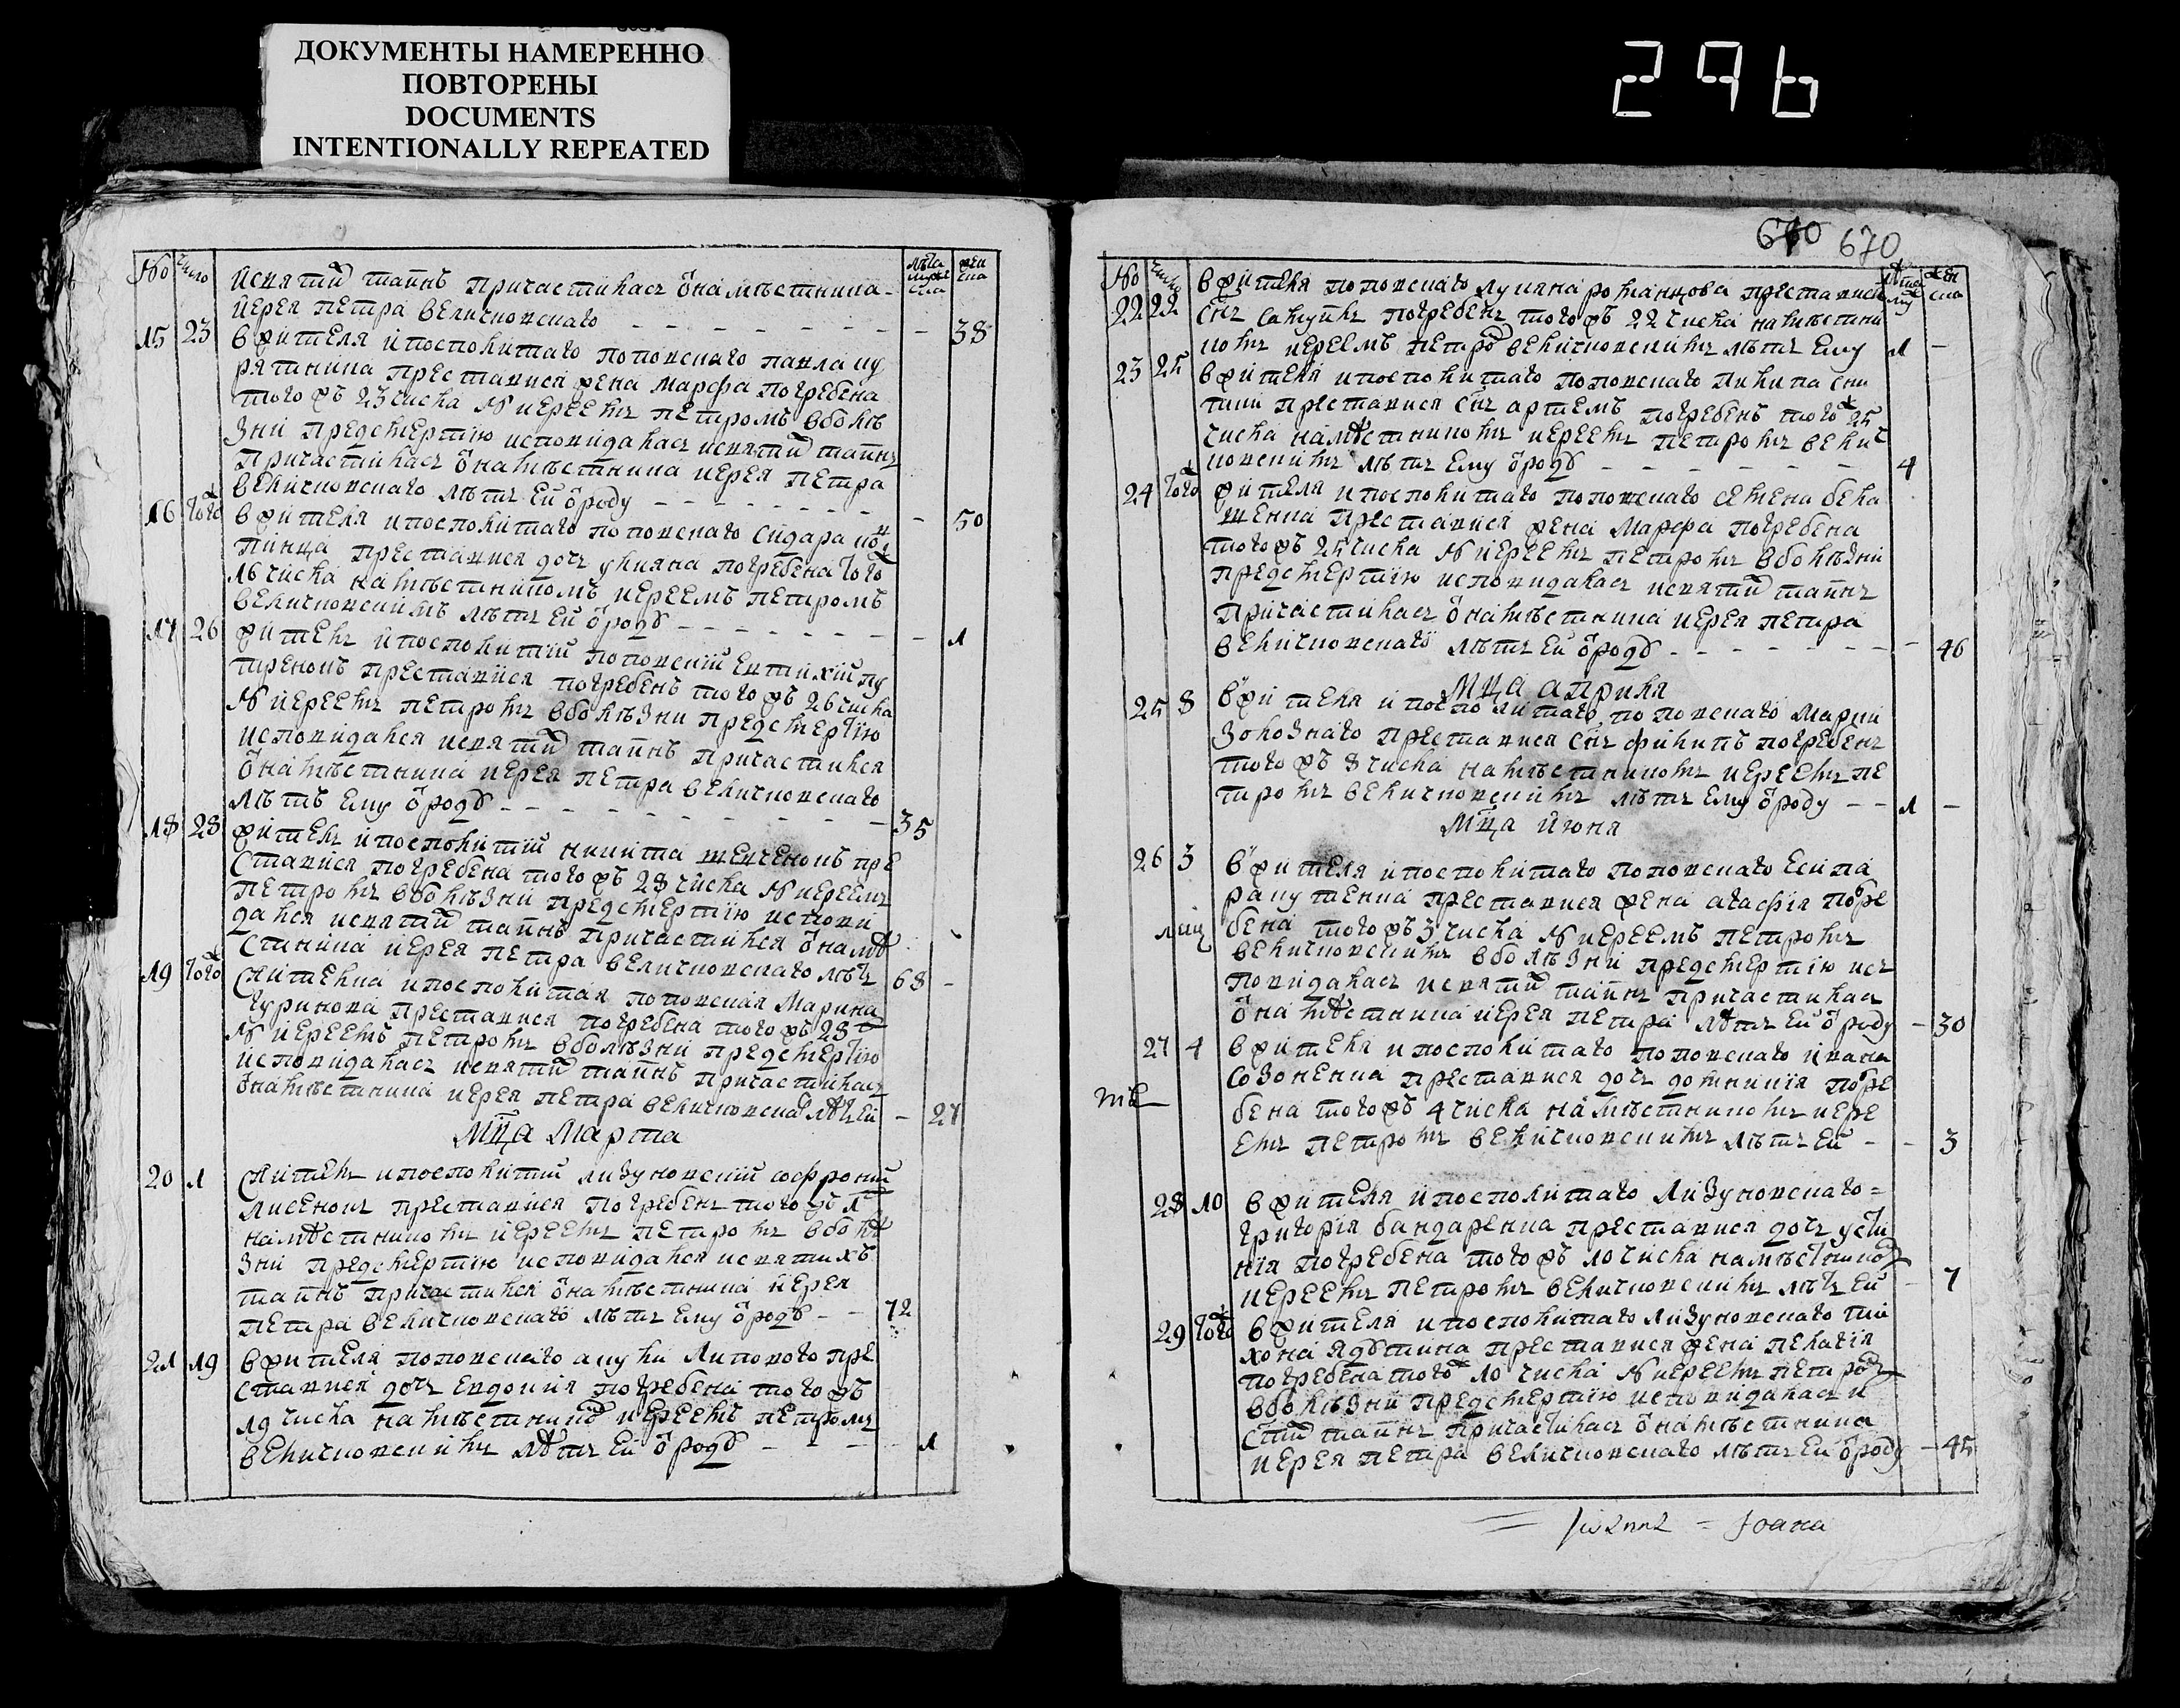 ДОКУМЕНТЫ НАМЕРЕННО
ПОВТОРЕНЫ
DOCUMENTS
INTENTIONALLY REPEATED
296
№ число лѣта мужеска женска
исвятихъ таинъ причастилася ѿ намѣстника
иерея петра величковскаго - - - 38
15 23 вжителя ипосполитаго поповскаго павла
преставися жена марфа погребена
того жъ 23 числа N иереемъ петромъ вболѣ
зни предсмертію исповидалася исвятихъ таинъ
причастилася ѿ намѣстника иерея петра
величковскаго лѣтъ ей ѿ роду - - - 50
16 тогож вжителя ипосполитаго поповскаго сидара
преставися дочъ улияна погребена тогож
числа намѣстникомъ иереемъ петромъ
величковскимъ лѣтъ ей ѿ родѹ - - - 1
17 26 житель ипосполитій поповскій евтихій
преставися погребенъ того жъ 26 числа
N иереемъ петромъ вболѣзни предсмертію
исповидался исвятихъ таинъ причастился
ѿ намѣстника иерея петра величковскаго
лѣтъ ему ѿ родѹ - - - 35
18 28 житель ипосполитій никита шевченокъ пре
ставися погребена того жъ 28 числа N иереемъ
петромъ вболѣзни предсмертію испови
дался исвятихъ таинъ причастился ѿ намѣ
стника иерея петра величковскаго лѣтъ 68 -
19 тогож жителка ипосполитая поповская марина
чуринова преставися погребена того жъ 28
N иереемъ петромъ вболѣзни предсмертію
исповидалася исвятихъ таинъ причастилася
ѿ намѣстника иерея петра величковскаго лѣтъ ей - 27
Мца Марта
20 1 житель ипосполитий лизуновскій софроний
лисенокъ преставися погребенъ того жъ 1
намѣстникомъ иереемъ петромъ вболѣ
зни предсмертію исповидался исвятихъ
таинъ причастился ѿ намѣстника иерея
петра величковскаго лѣтъ ему ѿ родѹ - - 72
21 19 вжителя поповскаго луки липового пре
ставися дочъ евдокия погребена того жъ
19 числа намѣстникомъ иереемъ петромъ
величковскимъ лѣтъ ей ѿ родѹ - - - 1
670 670
№ число лѣта муж женска
22 22 вжителя поповскаго лукяна романцова преставися
снъ погребенъ того жъ 22 числа намѣстни
комъ иереемъ петромъ величковскимъ лѣтъ ему 1 -
23 25 вжителя ипосполитаго поповскаго
преставися снъ артемъ погребенъ тогож 25
числа намѣстникомъ иереемъ петромъ велич
ковскимъ лѣтъ ему ѿ родѹ - - - 4
24 тогож жителя ипосполитаго поповскаго семена
преставися жена марфа погребена
того жъ 25 числа N иереемъ петромъ вболѣзни
предсмертію исповидалася исвятихъ таинъ
причастилася ѿ намѣстника иерея петра
величковскаго лѣтъ ей ѿ родѹ - - - 46
Мца априля
25 8 вжителя ипосполитаго поповскаго
преставися снъ филипъ погребенъ
того жъ 8 числа намѣстникомъ иереемъ пе
тромъ величковскимъ лѣтъ ему ѿ роду - - 1 -
Мца июня
26 3 вжителя ипосполитаго поповскаго есипа
преставися жена агафія погре
бена того жъ 3 числа N иереемъ петромъ
величковскимъ вболѣзни предсмертію ис
повидалася исвятихъ таинъ причастилася
ѿ намѣстника иерея петра лѣтъ ей ѿ роду - 30
27 4 вжителя ипосполитаго поповскаго ивана
созоненка преставися дочъ домникія погре
бена того жъ 4 числа намѣстникомъ иере
емъ петромъ величковскимъ лѣтъ ей - - 3
28 10 вжителя ипосполитаго лизуновскаго=
григорія бандаренка преставися дочъ усти
нія погребена того жъ 10 числа намѣстником
иереемъ петромъ величковскимъ лѣтъ ей - 7
29 тогож вжителя ипосполитаго лизуновскаго ти
хона преставися жена пелагія
погребена тогож 10 числа N иереемъ петром
вболѣзни предсмертію исповидалася и
стихъ таинъ причастилася ѿ намѣстника
иерея петра величковскаго лѣтъ ей ѿ роду - 45